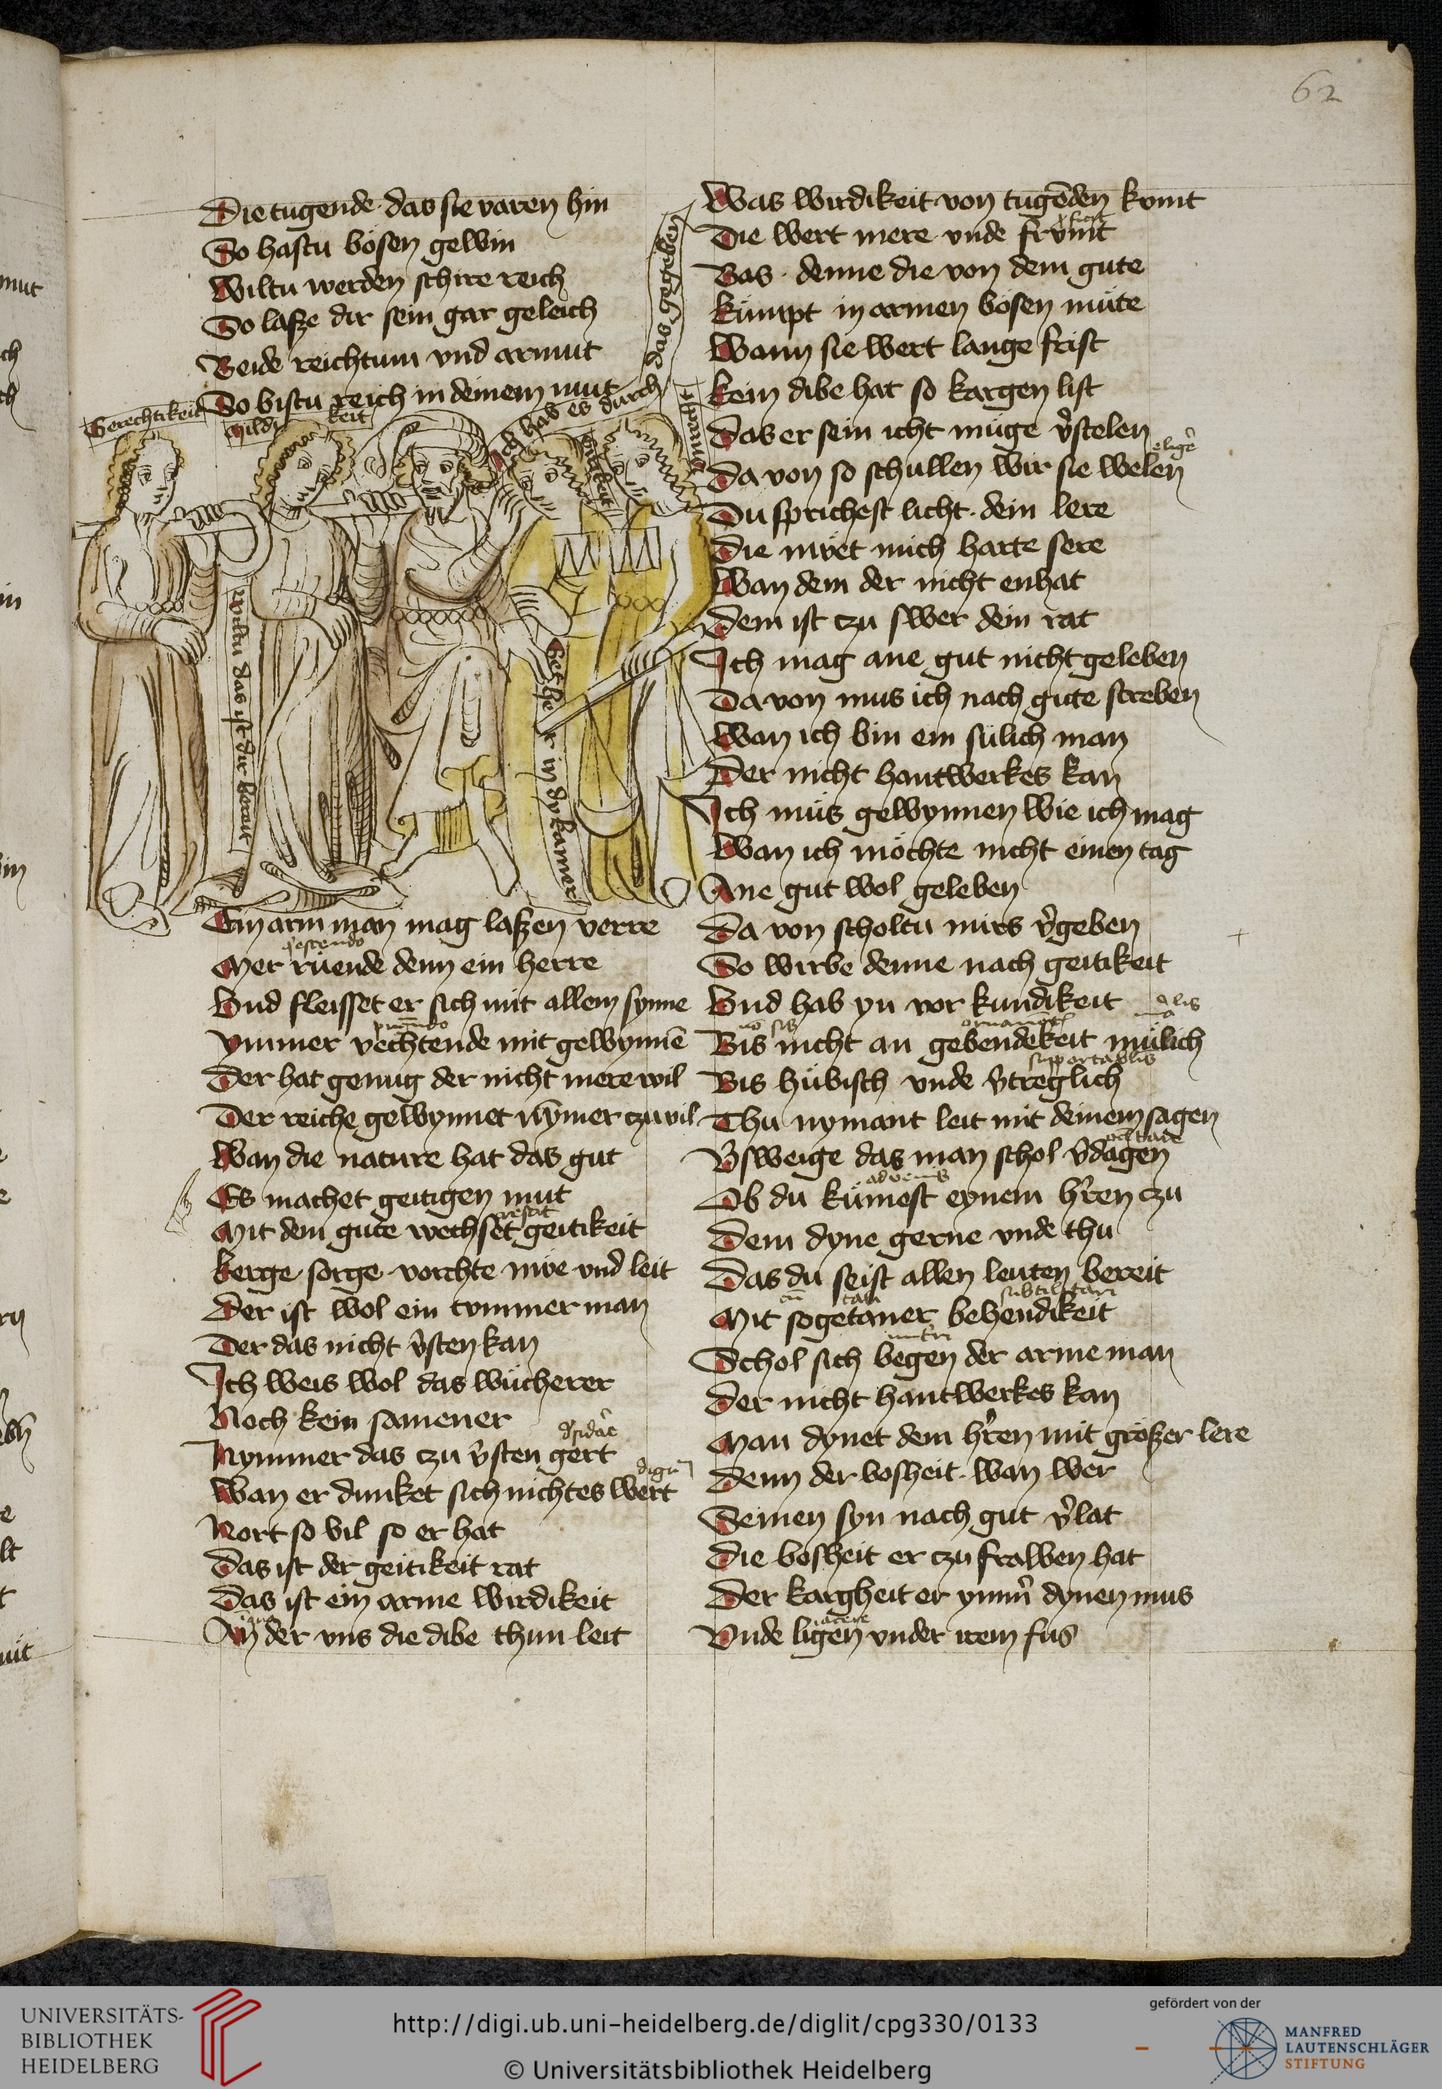 62
Die tugende das sie varen hin
So hastu bösen gewin
Wiltu werden schire reich
So lasze dir sein gar geleich
Beide reichtum vnd armut
So bistu reich in deinem mut
Gerechtikeit
Mildikeit
Ich hab es durch
got gegeben
das ist dir bereit
in dy kamer
Ein arm man mag laszen verre
Mer rüende denn ein herre
Vnd fleisset er sich mit allem synne
Ymmer vechtende mit gewynnē
Der hat genug der nicht mere wil
Der reiche gewynnet nȳmer czu vil
Wan die nature hat das gut
Es machet geitigen mut
Mit dem gute wechset geitikeit
kerge sorge vorchte müe vnd leit
Der ist wol ein tummer man
Der das nicht v̉sten kan
Ich weis wol das wücherer
Noch kein samener
Nymmer das czu v̉sten gert
Wan er dunket sich nichtes wert
Nort so vil so er hat
Das ist der geitikeit rat
Das ist ein arme wirdikeit
An der vns die dibe thun leit
Was wirdikeit von tugēden kvmt
Die wert mere vnde frvmt
Bas denne die von dem gute
kümpt in armen bösen müte
Wann sie wert lange frist
kein dibe hat so kargen list
Das er sein icht müge v̉stelen
Da von so schullen wir sie welen
Du sprichest licht dein lere
Die müet mich harte sere
Wan dem der nicht enhat
Dem ist czu swer dein rat
Ich mag ane gut nicht geleben
Da von mus ich nach gute streben
Wan ich bin ein sülich man
Der nicht hantwerkes kan
Ich müs gewynnen wie ich mag
Wan ich möchte nicht einen tag
Ane gut wol geleben
Da von scholtu mirs v̉geben
So wirbe denne nach geitikeit
Vnd hab yn vor kundikeit
Bis nicht an gebendekeit mülich
Bis hübisch vnde v̉treglich
Thu nymant leit mit deinem sagen
Vsweige das man schol v̉dagen
Ob du kümest eynem h̉ren czu
Dem dyne gerne vnde thu
Das du seist allen leuten bereit
Mit sogetaner behendikeit
Schol sich begen der arme man
Der nicht hantwerkes kan
Man dynet dem h̉ren mit gröszer lere
Denn der bosheit wan wer
Seinen syn nach gut v̉lat
Die bosheit er czu frawen hat
Der kargheit er ymm̉ dynen mus
Vnde ligen vnder irem fus
UNIVERSITÄTS-
BIBLIOTHEK
HEIDELBERG
http://digi.ub.uni-heidelberg.de/diglit/cpg330/0133
© Universitätsbibliothek Heidelberg
gefördert von der
MANFRED
LAUTENSCHLÄGER
STIFTUNG